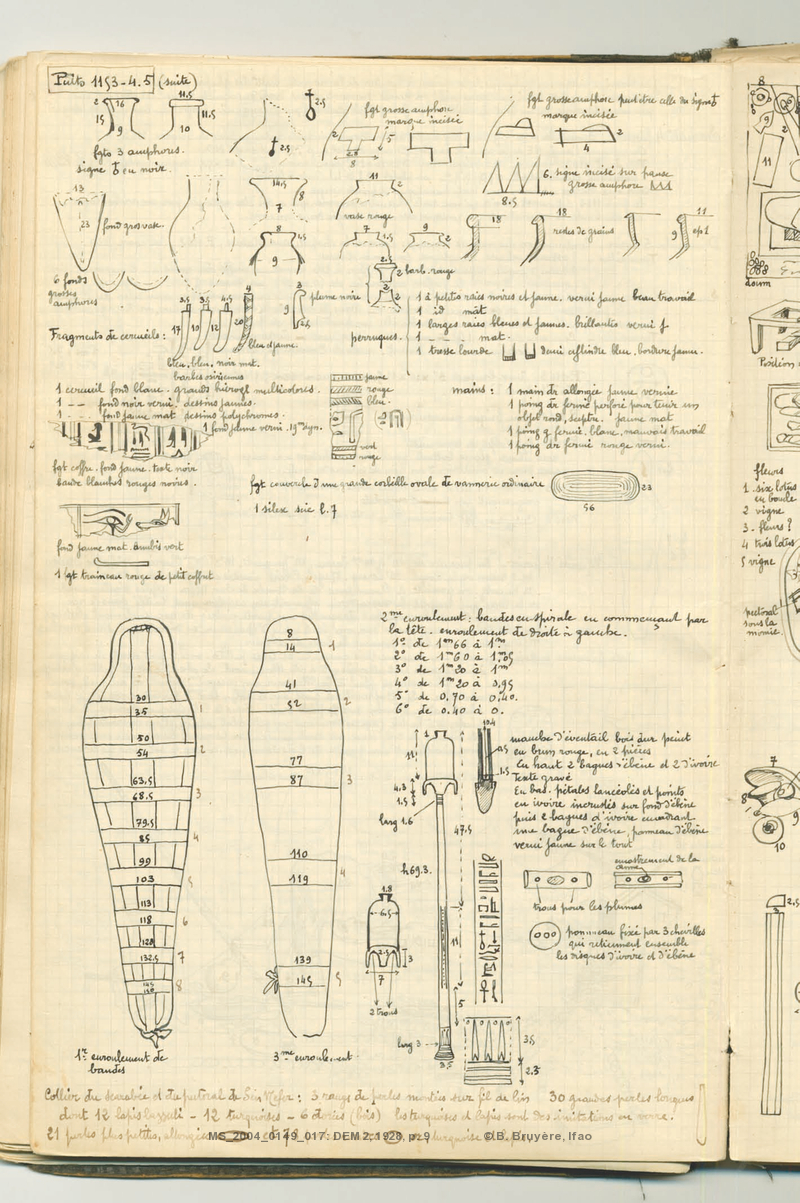 Puits 1153-4.5 (suite)
2 16
15
9
11.5
11.5
10
2.5
2.5
fgts 3 amphores.
signe en noir.
fgt grosse amphore
marque incisée
2
5
2.8
8
fgt grosse amphore peut être celle du signe
marque incisée
4
2
8.5
6. signe incisé sur panse
grosse amphore
13
23
fond gros vase
14.5
7
8
11
2
vase rouge
8
1.5
9
7
1.5
9
2
18
18
redes de grains
11
9
ep 1
6 fonds
grosses
amphores
2 barb. rouge
2
Fragments de cercueils:
3.5
3.5
4.5
4
17
10
12
20
bleu et jaune.
bleu, bleu, noir mat.
barbes osiriennes
3
9
2.5
plume noire
perruques.
1 à petites raies noires et jaune. verni jaune beau travail
1 id mat
1 larges raies bleues et jaunes. brillantes verni f.
1 - - - mat.
1 tresse lourde demi cylindre bleu, bordure jaune.
1 cercueil fond blanc. grands hierogl multicolores.
1 - - fond noir verni, dessins jaunes.
1 - - fond jaune mat dessins polychromes.
1 fond jaune verni. 19e dyn.
jaune
rouge
bleu
vert
rouge
mains: 1 main dr allongée jaune vernie
1 poing dr fermé perforé pour tenir un
objet rond, sceptre. jaune mat
1 poing g. fermé. blanc, mauvais travail
1 poing dr fermé rouge verni.
fgt coffre. fond jaune. texte noir
bande blanches rouges noires.
fgt couvercle d'une grande corbeille ovale de vannerie ordinaire
23
56
1 silex scie l. 7
fond jaune mat. anubis vert
1 fgt traineau rouge de petit coffret
30
35
1
50
54
2
63.5
68.5
3
79.5
85
4
99
103
5
113
118
6
128
132.5
7
145
8
1er enroulement de
bandes
8
14
1
41
52
2
77
87
3
110
119
4
139
145
5
3me enroulement
2me enroulement: bandes en spirale en commençant par
la tête. enroulement de droite à gauche.
1° de 1m66 à 1m
2° de 1m60 à 1m.05
3° de 1m20 à 1m
4° de 1m20 à 0,95
5° de 0,70 à 0,40.
6° de 0,40 à 0.
1
11
4.3
1.5
larg 1.6
47.5
h 69.3.
11
5
larg 3
3.5
10.4
1.5
manche d'éventail bois dur peint
en brun rouge, en 2 pièces
En haut 2 bagues d'ébène et 2 d'ivoire
Texte gravé
En bas. pétales lancéolés et pointes
en ivoire incrustés sur fond d'ébène
puis 2 bagues d'ivoire encadrant
une bague d'ébène, pommeau d'ébène
verni jaune sur le tout
1.8
6.5
3
7
2 trous
encastrement de la
trous pour les plumes
pommeau fixé par 3 chevilles
qui retiennent ensemble
les disques d'ivoire et d'ébène
3.5
2.3
Collier du scarabée et du pectoral de Sen Nefer: 3 rangs de perles montées sur fil de lin 30 grandes perles longues
dont 12 lapis lazuli - 12 turquoises - 6 dorées (bois) les turquoises et lapis sont des imitations en verre.
21 perles plus petites, allongées
MS_2004_0149_017: DEM 2, 1928, p. 9 © B. Bruyère, Ifao
8
9
11
doum
Position
fleurs
1 six lotus
en boucle
2 vigne
3. fleurs?
4 trois lotus
5 vigne
pectoral
sous la
momie
7
8
9
10
2.5